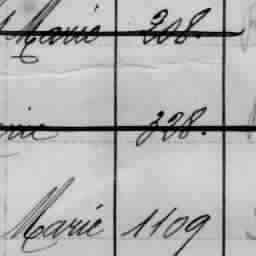 Marie 208.
rie 328.
Marie 1109